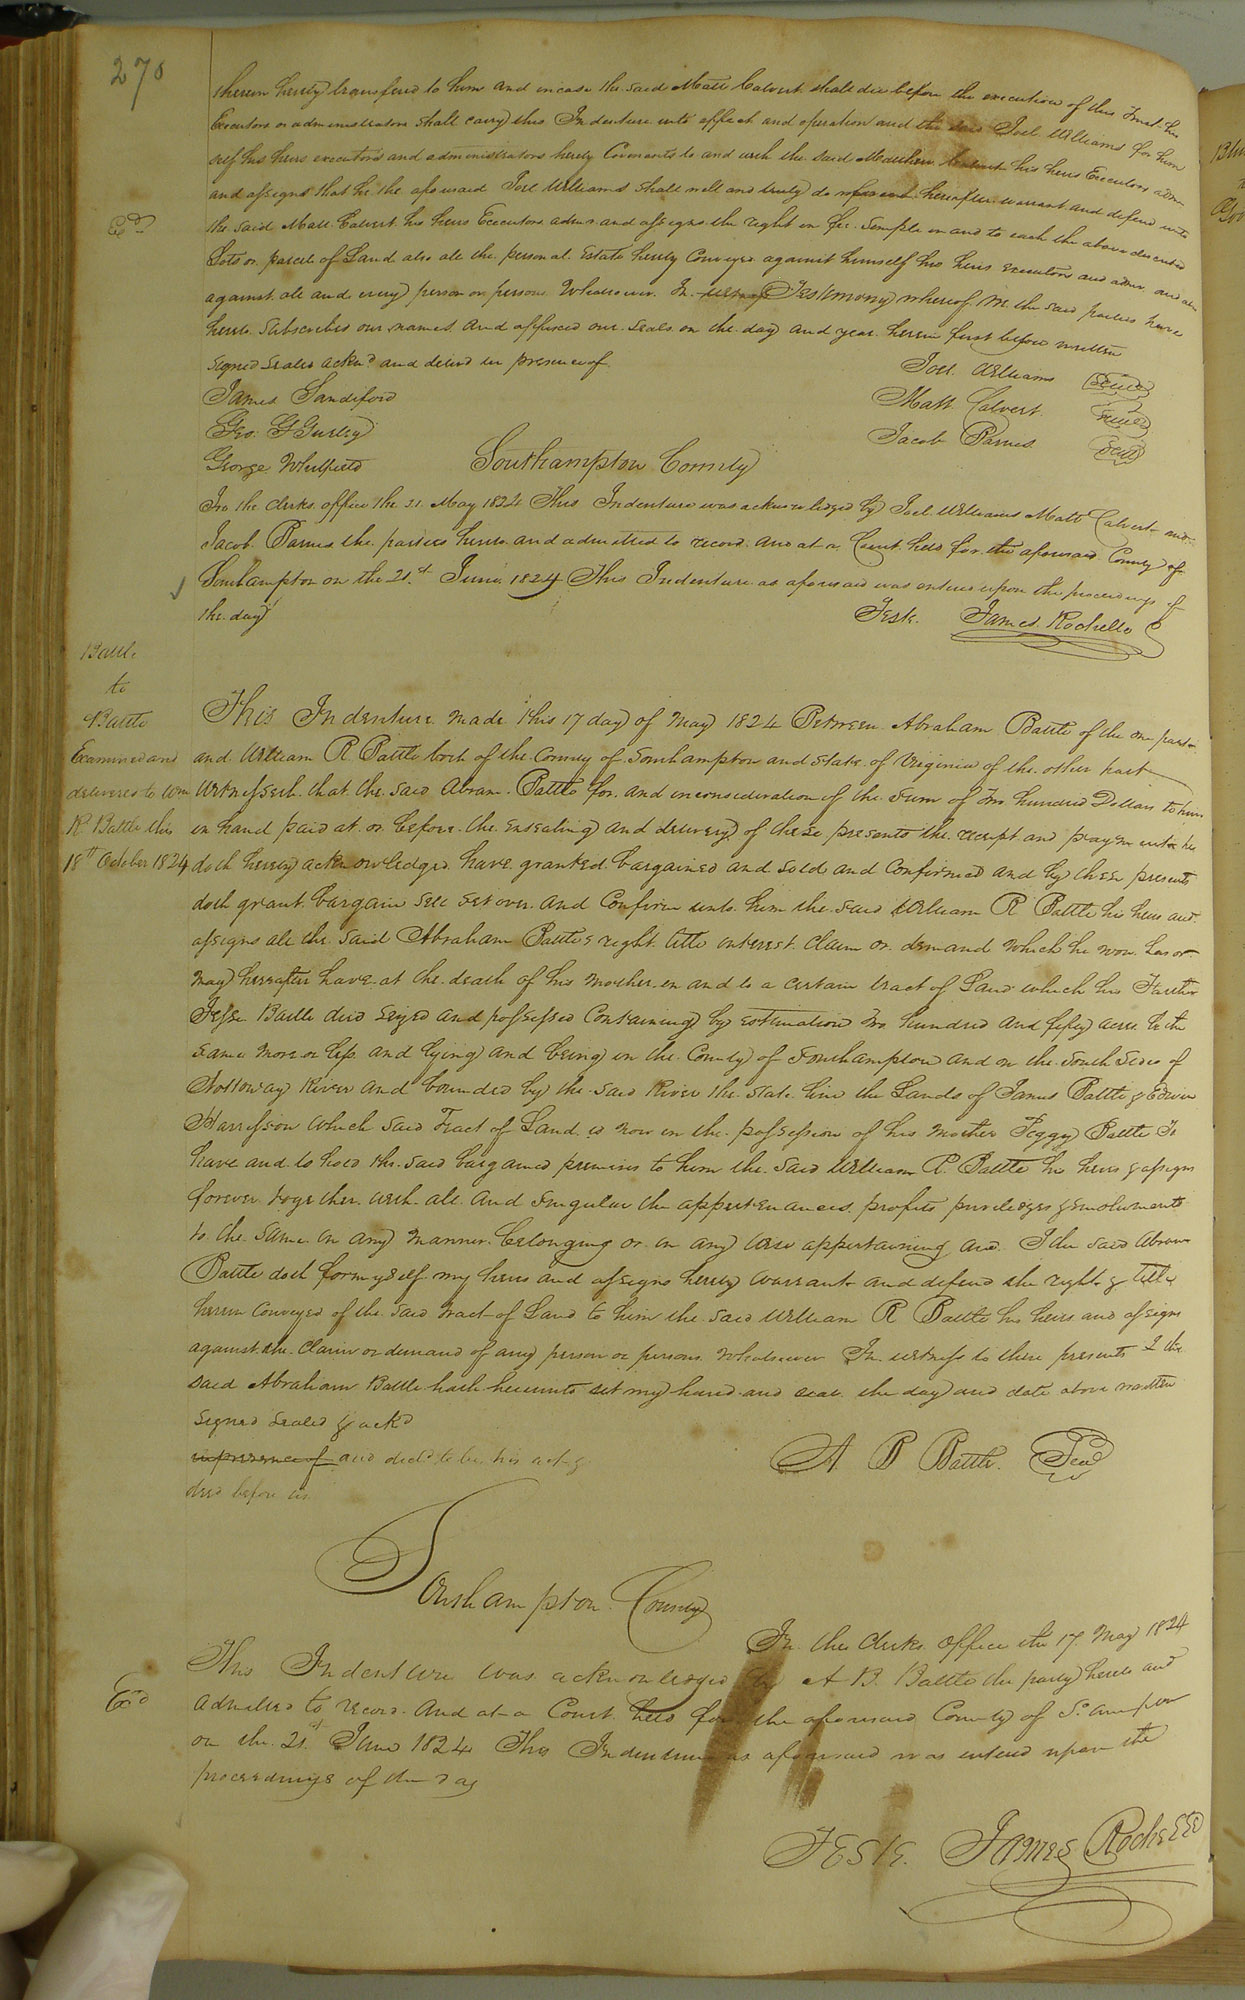 270
therein hereby transfered to him and in case the said Matt Calvert shall die before the execution of this Trust his
Executors or administrators shall carry this Indenture into effect and operation and the said Joel Williams for him
self his heirs executors and administrators hereby Covenants to and with the said Matthew Calvert his heirs Executors adm
and assigns that he the aforesaid Joel Williams shall well and truly do hereafter warrant and defend unto
Exd
the said Matt Calvert his heirs Executors admrs and assigns the right in fee Simple in and to each the above described
Lots or parcel of Land also all the personal Estate hereby Conveyed against himself his heirs executors and admr and also
against all and every person or persons Whatsoever In witness Testimony whereof We the said parties have
hereto Subscribed our names and affixed our Seals on the day and year herein first before written
Signed Sealed acknd and delivd in presence of
Joel Williams Seal
James Sandiford
Matt Calvert Seal
Geo. G Gurley
Jacob Barnes Seal
George Whitfield
Southampton County
In the Clerks office the 21 May 1824 This Indenture was acknowledged by Joel Williams Matt Calvert and
Jacob Barnes the parties hereto and admitted to record and at a Court held for the aforesaid County of
Southampton on the 21st June 1824 This Indenture as aforesaid was entered upon the proceedings of
the day
Teste James Rochelle C
Battle
to
Battle
Examined and
delivered to Wm
R Battle this
18th October 1824
This Indenture made this 17 day of May 1824 Between Abraham Battle of the one part
and William R Battle both of the County of Southampton and State of Virginia of the other part
Witnesseth that the said Abram Battle for and in consideration of the Sum of Two hundred Dollars to him
in hand paid at or before the ensealing and delivery of these presents the receipt and payment he
doth hereby acknowledged have granted bargained and sold and Confirmed and by these presents
doth grant bargain Sell Set over and Confirm unto him the said William R Battle his heirs and
assigns all the said Abraham Battles right title interest Claim or demand which he now has or
may hereafter have at the death of his mother in and to a certain tract of Land which his Farther
Jesse Battle died Seized and possessed Containing by estimation Two hundred and fifty acres be the
same more or less and lying and being in the County of Southampton and on the South Side of
Nottoway River and bounded by the said River the State line the Lands of James Battle & Edwin
Harrisson which said Tract of Land is now in the possession of his mother Peggy Battle To
have and to hold the said bargained premises to him the said William R. Battle his heirs & assigns
forever together with all and Singular the appurtenances profits priviledges & emoluments
to the same in any manner belonging or in any wise appertaining and I the said Abram
Battle doth for myself my heirs and assigns hereby warrant and defend the right & title
herein Conveyed of the said tract of Land to him the said William R Battle his heirs and assigns
against the Claim or demand of any person or persons whatsoever In witness to these presents I the
said Abraham Battle hath hereunto set my hand and seal the day and date above written
Signed Sealed & ackd
in presence of and decd to be his act &
A B Battle Seal
deed before us
Southampton County
In the Clerks office the 17 May 1824
This Indenture was acknowledged by A B. Battle the party hereto and
Exd
admitted to record and at a Court held for the aforesaid County of So ampton
on the 21st June 1824 This Indenture as aforesaid was entered upon the
proceedings of the day
Teste James Rochelle